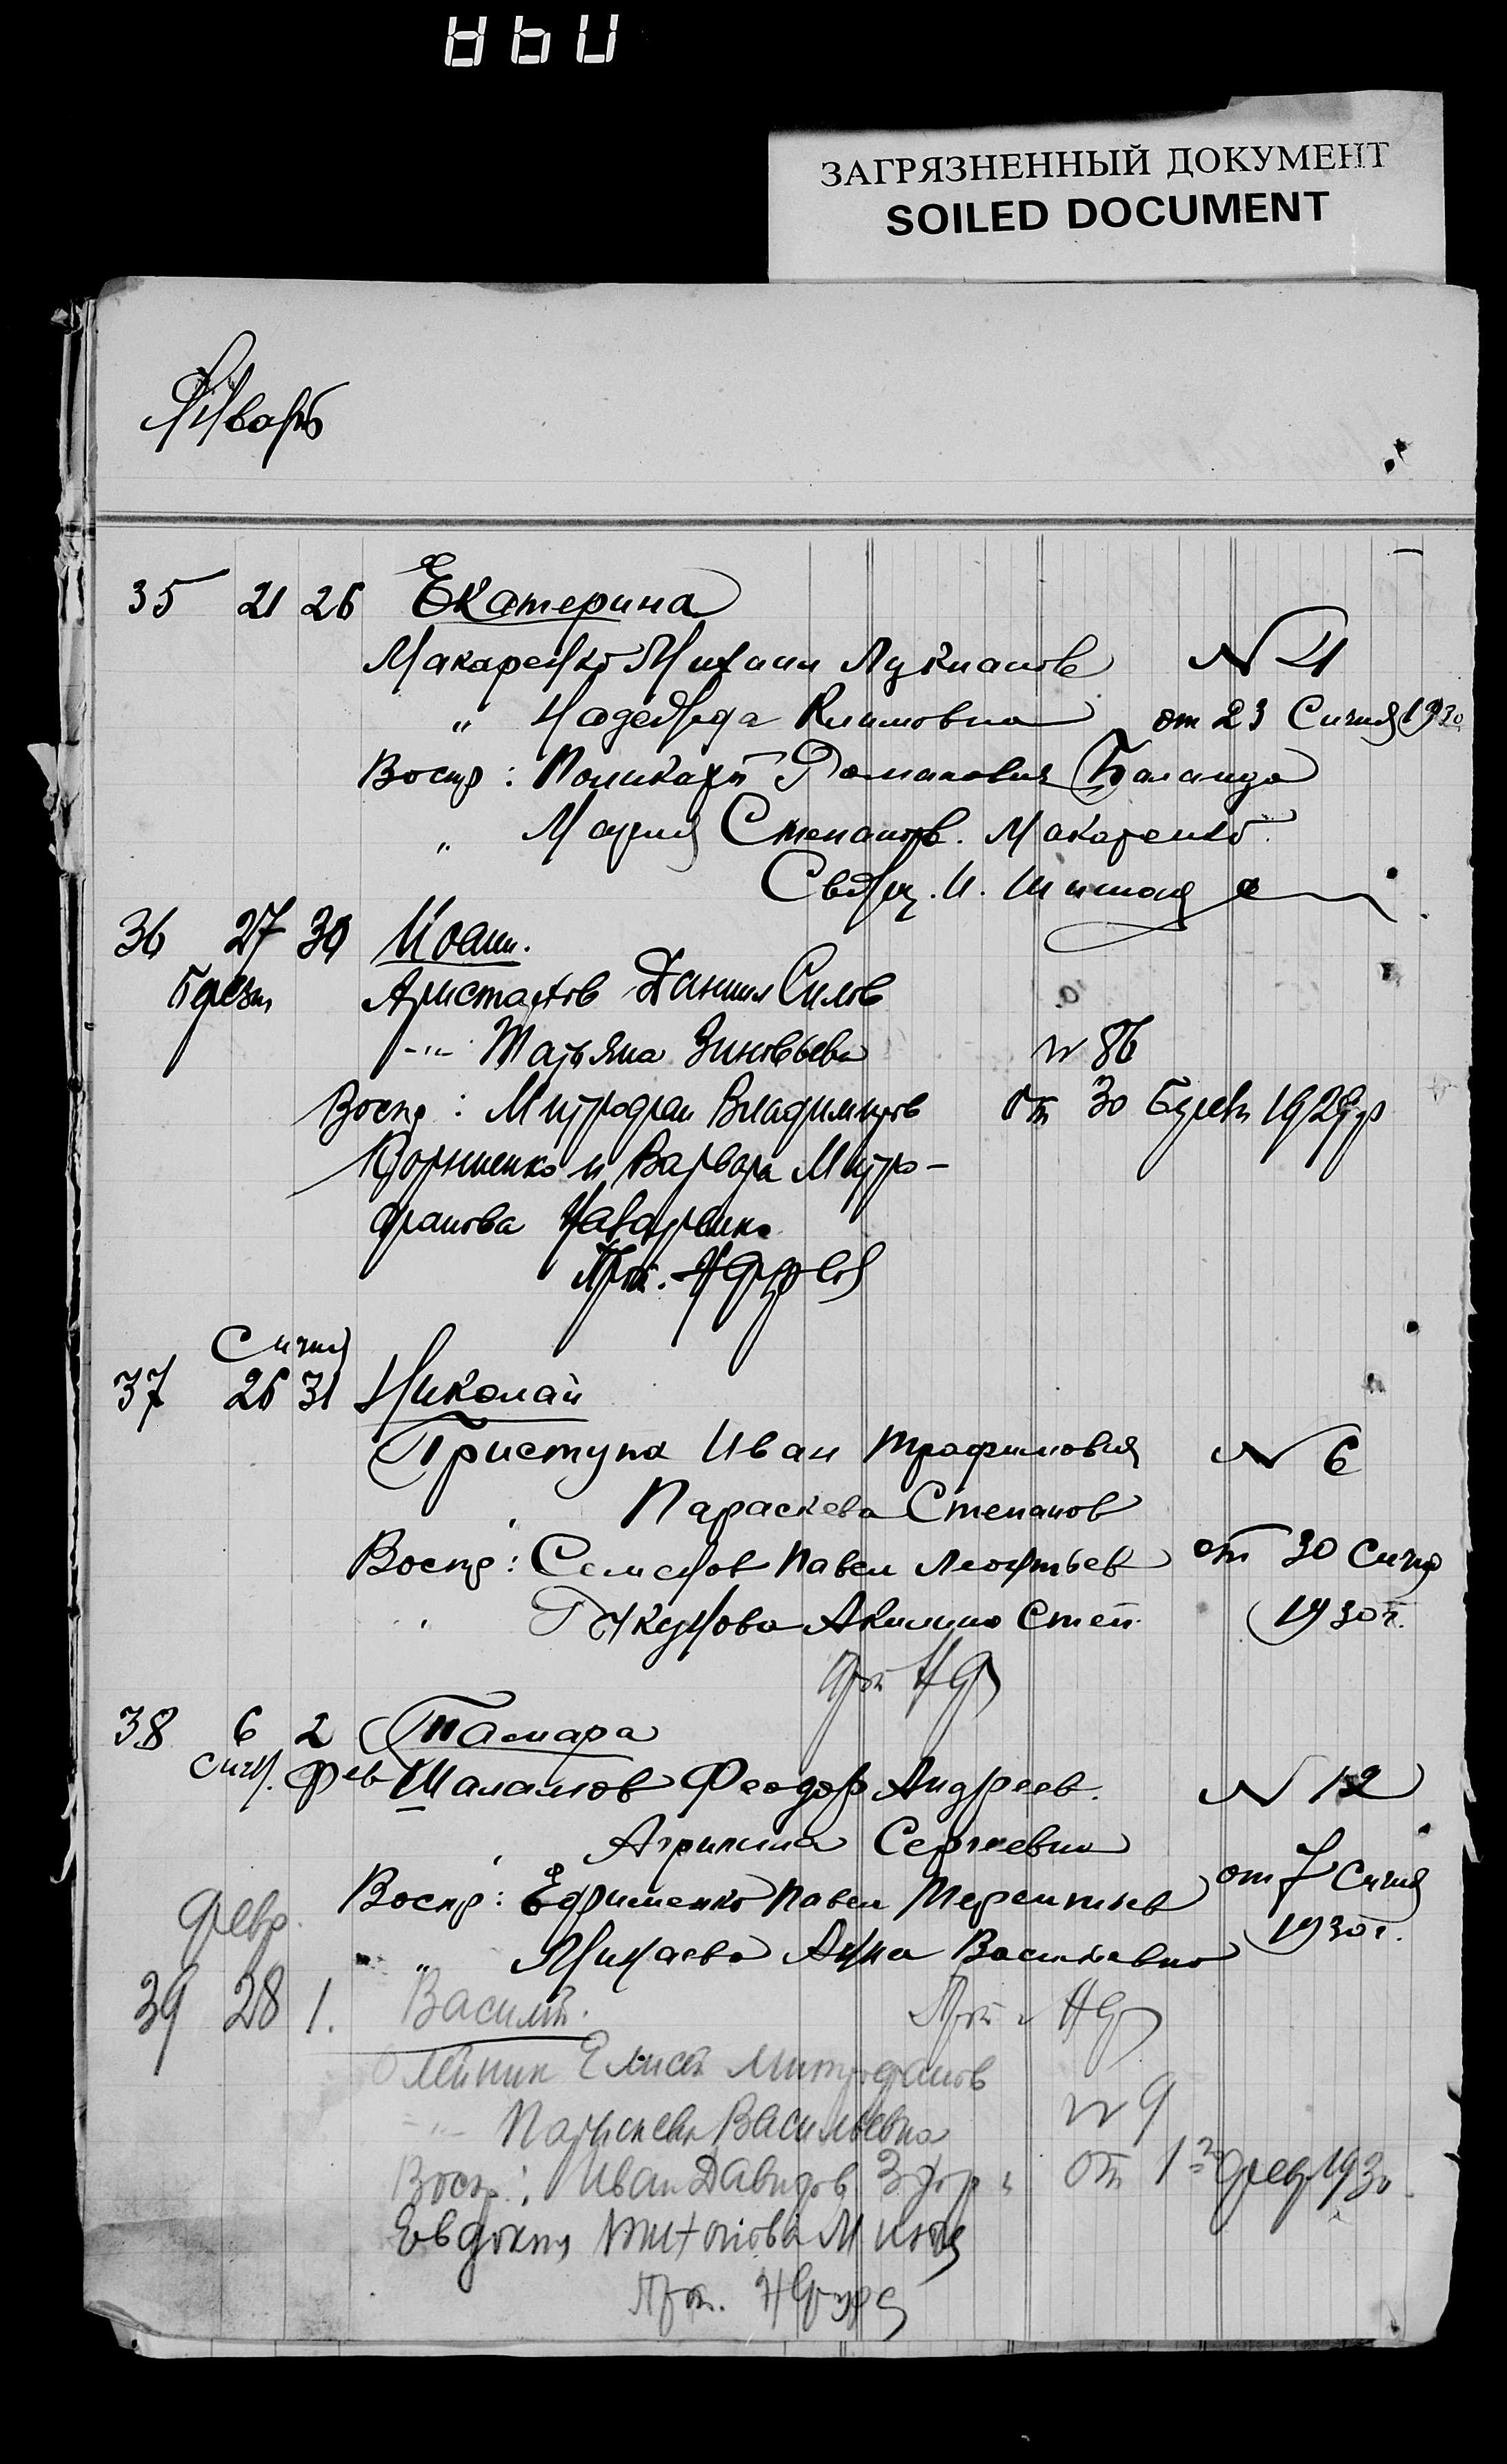 ЗАГРЯЗНЕННЫЙ ДОКУМЕНТ
SOILED DOCUMENT
Январь
35 21 26 Екатерина
Макаренко Михаил Лукианов N 4
" Надежда Климовна от 23 Сичня 1930
Воспр: Поликарп Романович Баланда
" Мария Степанов. Макаренко
Свящ. И.
36 27 30 Иоанн.
Березн Аристахов Даниил Силов
-"- Татьяна Зиновьева N 86
Воспр: Митрофан Владимиров От 30 Березн 1929 р
Корниенко и Варвара Митро-
фанова
Прот.
Сичня
37 26 31 Николай
Приступа Иван Трофимович N 6
Параскева Степанов
Воспр: Семенов Павел Леонтьев от 30 Сичня
Акилина Степ. 1930 г.
прот
38 6 2 Тамара
Сичн. Фев Шаламов Феодор Андреев. N 12
Агрипина Сергеевна
Воспр: Ефименко Павел Терентьев от 7 Сичня
февр. 1930 г.
" Минаева Анна Васильевна
39 28 1. Василий. Прот
Олейник Елисей Митрофанов
-"- Параскева Васильевна N 9
Воспр: Иван Давидов От 1 февр 1930
Евдокия
Прот.